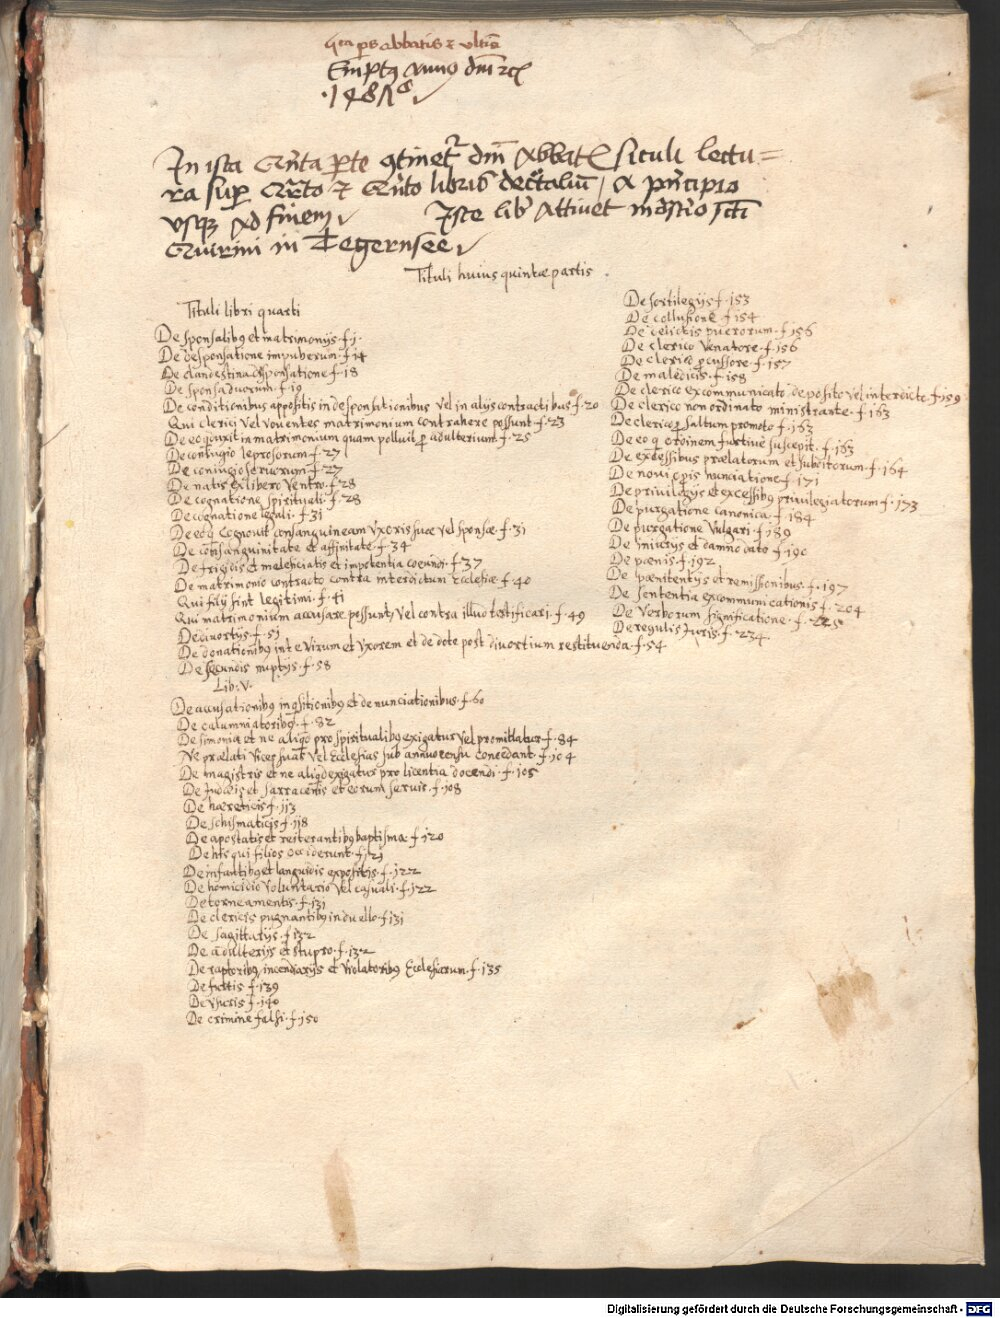 Qta ps abbatis et ultia
Emptq Anno dni rc
·1481·
In ista Quita pte 9tinet dni Abbatis Siculi lectu=
ra sup Qrto et Quito libris decretaliu / A pncipio
vsq Ad finem
Iste lib Attinet mastio scti
Quirini in Tegernsee
Tituli huius quintæ partis .
Tituli libri quarti
De sponsalibq et matrimonijs·f·j·
De desponsatione impuberum·f·14
De clandestina desponsatione·f·18
De sponsa duorum·f·19
De conditionibus appositis in desponsationibus vel in alijs contractibus·f·20
Qui clerici vel vouentes matrimonium contrahere possunt·f·23
De eo q duxit in matrimonium quam polluit p adulterium·f·25
De coniugio leprosorum·f·27
De coniugio seruorum·f·27
De natis ex libero ventre·f·28
De cognatione spirituali·f·28
De cognatione legali·f·31
De eo q cognouit consanguineam vxoris suæ vel sponsæ·f·31
De consanguinitate et affinitate·f·34
De frigidis et maleficiatis et impotentia coeundi·f·37
De matrimonio contracto contra interdictum Ecclesiæ·f·40
Qui filij sint legitimi·f·41
Qui matrimonium accusare possunt, vel contra illud testificari·f·49
De diuortijs·f·51
De donationibq inter virum et vxorem et de dote post diuortium restituenda·f·54
De secundis nuptijs·f·58
Lib·V·
De accusationibq inqsitionibq et denunciationibus·f·60
De calumniatoribq·f·82
De simonia et ne aliqd pro spiritualibq exigatur vel promittatur·f·84
Ne prælati vices suas vel Ecclesias sub annuo censu concedant·f·104
De magistris et ne aliqd exigatur pro licentia docendi·f·105
De Judæis et sarracenis et eorum seruis·f·108
De hæreticis f·113
De schismaticis·f·118
De apostatis et reiterantibq baptisma f·120
De his qui filios occiderunt·f·121
De infantibq et languidis expositis·f·122
De homicidio voluntario vel casuali·f·122
De torneamentis·f·131
De clericis pugnantibq in duello·f·131
De sagittarijs·f·132
De adulterijs et stupro·f·132
De raptoribq, incendiarijs et violatoribq Ecclesiarum·f·135
De furtis f·139
De vsuris f·140
De crimine falsi·f·150
De sortilegijs f·153
De collusione f·154
De delictis puerorum·f·156
De clerico venatore·f·156
De clerico pcussore·f·157
De maledicis·f·158
De clerico excommunicato deposito vel interdicto f·159
De clerico non ordinato ministrante·f·163
De clerico p saltum promoto f·163
De eo q ordinem furtiue suscepit·f·163
De excessibus prælatorum et subditorum·f·164
De noui opis nunciatione·f·171
De priuilegijs et excessibq priuilegiatorum·f·173
De purgatione canonica·f·184
De purgatione vulgari·f·189
De iniurijs et damno dato·f·190
De pœnis·f·192
De pœnitentijs et remissionibus·f·197
De sententia excommunicationis f·204
De verborum significatione·f·225
De regulis Juris·f·234
Digitalisierung gefördert durch die Deutsche Forschungsgemeinschaft - DFG